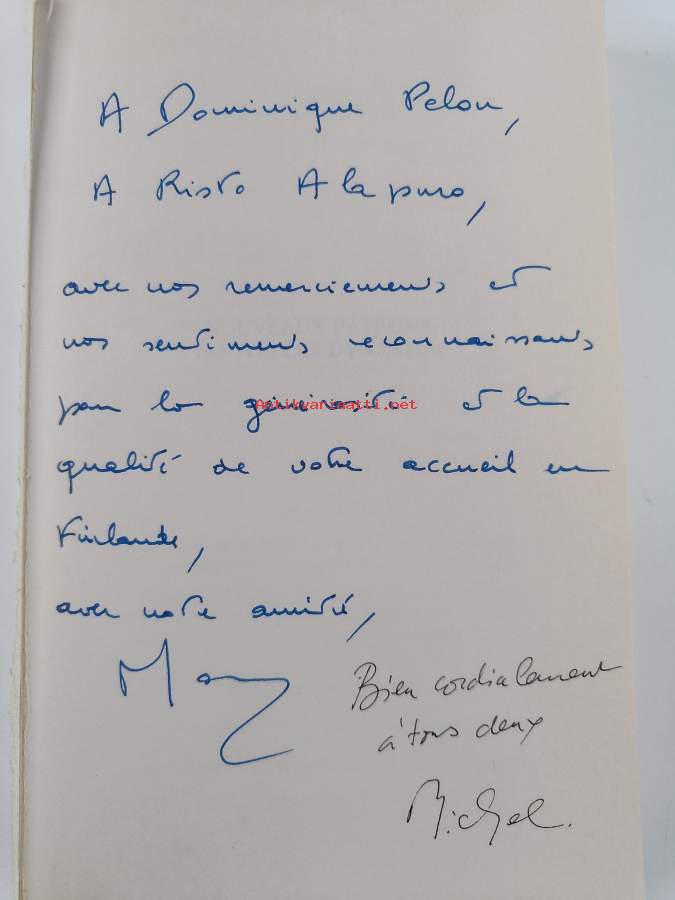 A Dominique Pelou,
A Risto Alapuro,
avec nos remerciements et
nos sentiments reconnaissants
pour la générosité et la
Antikvariaatti.net
qualité de votre accueil en
Finlande,
avec notre amitié,
Bien cordialement
à tous deux
Michel.